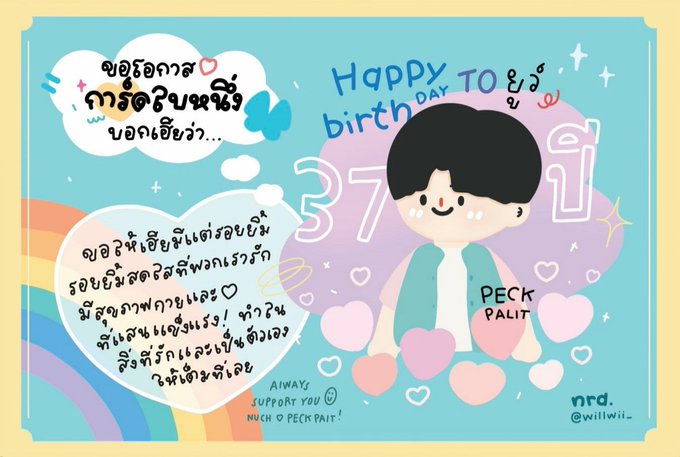 ขอโอกาส
การ์ดใบหนึ่ง
บอกเฮียว่า...
Happy
birthDAY TO ยูว์
37 ปี
ขอให้เฮียมีแต่รอยยิ้ม
รอยยิ้มสดใสที่พวกเรารัก
มีสุขภาพกายและ♡
ที่แสนแข็งแรง! ทำใน
สิ่งที่รักและเป็นตัวเอง
ให้เต็มที่เลย
PECK
PALIT
AlWAYS
SUPPORT YOU ☺
NUCH ♡ PECK PAIT!
nrd.
@willwii_